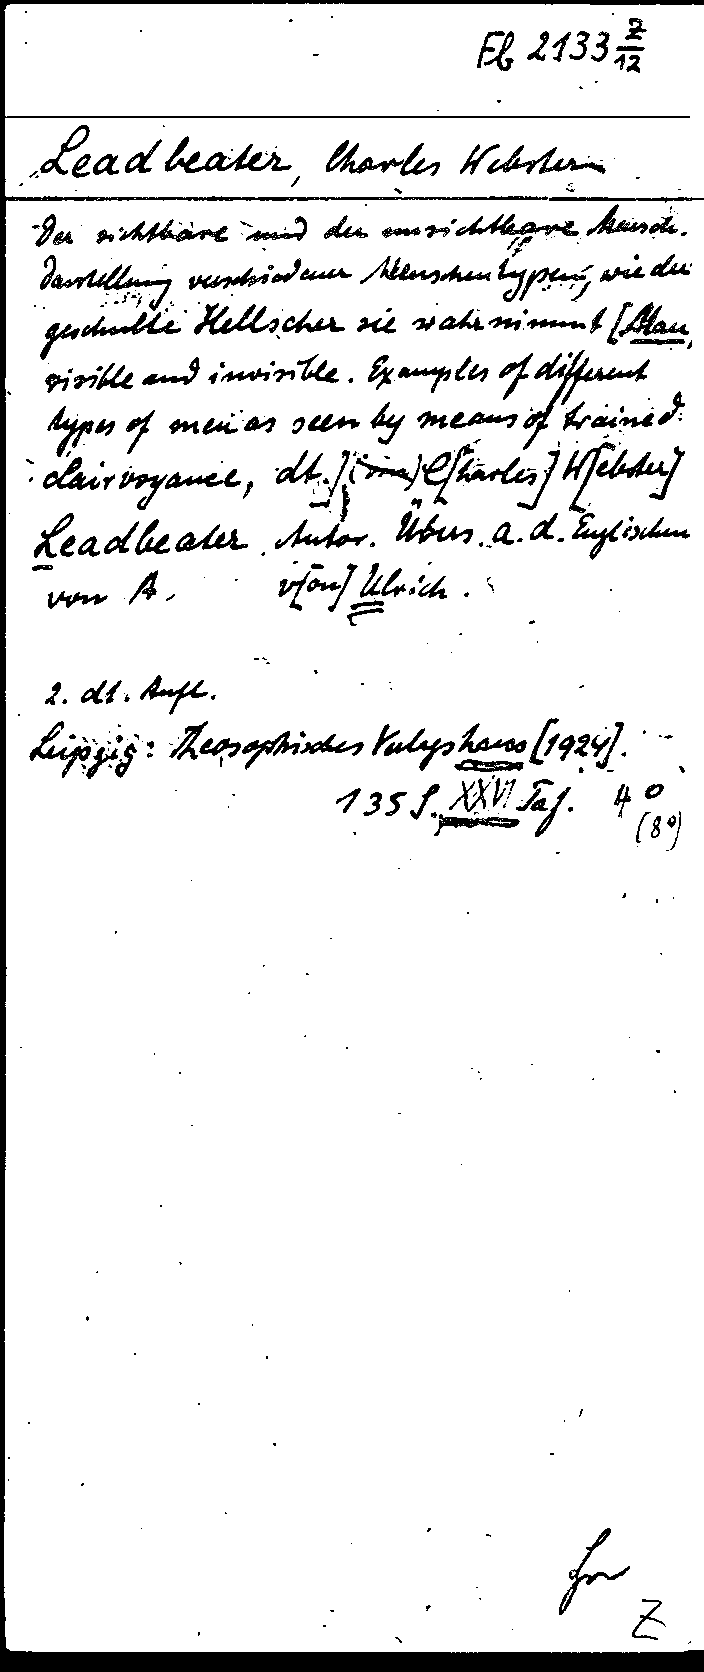 Fb 2133 Z/12
Leadbeater, Charles Webster
Der sichtbare und der unsichtbare Mensch.
Darstellung verschiedener Menschentypen, wie der
geschulte Hellseher sie wahrnimmt [Man,
visible and invisible. Examples of different
types of men as seen by means of trained
clairvoyance, dt.] C[harles] W[ebster]
Leadbeater. Autor. Übers. a. d. Englischen
von A. v[on] Ulrich.
2. dt. Aufl.
Leipzig: Theosophisches Verlagshaus [1924].
135 S. XXVI Taf. 4°
(8°)
Z